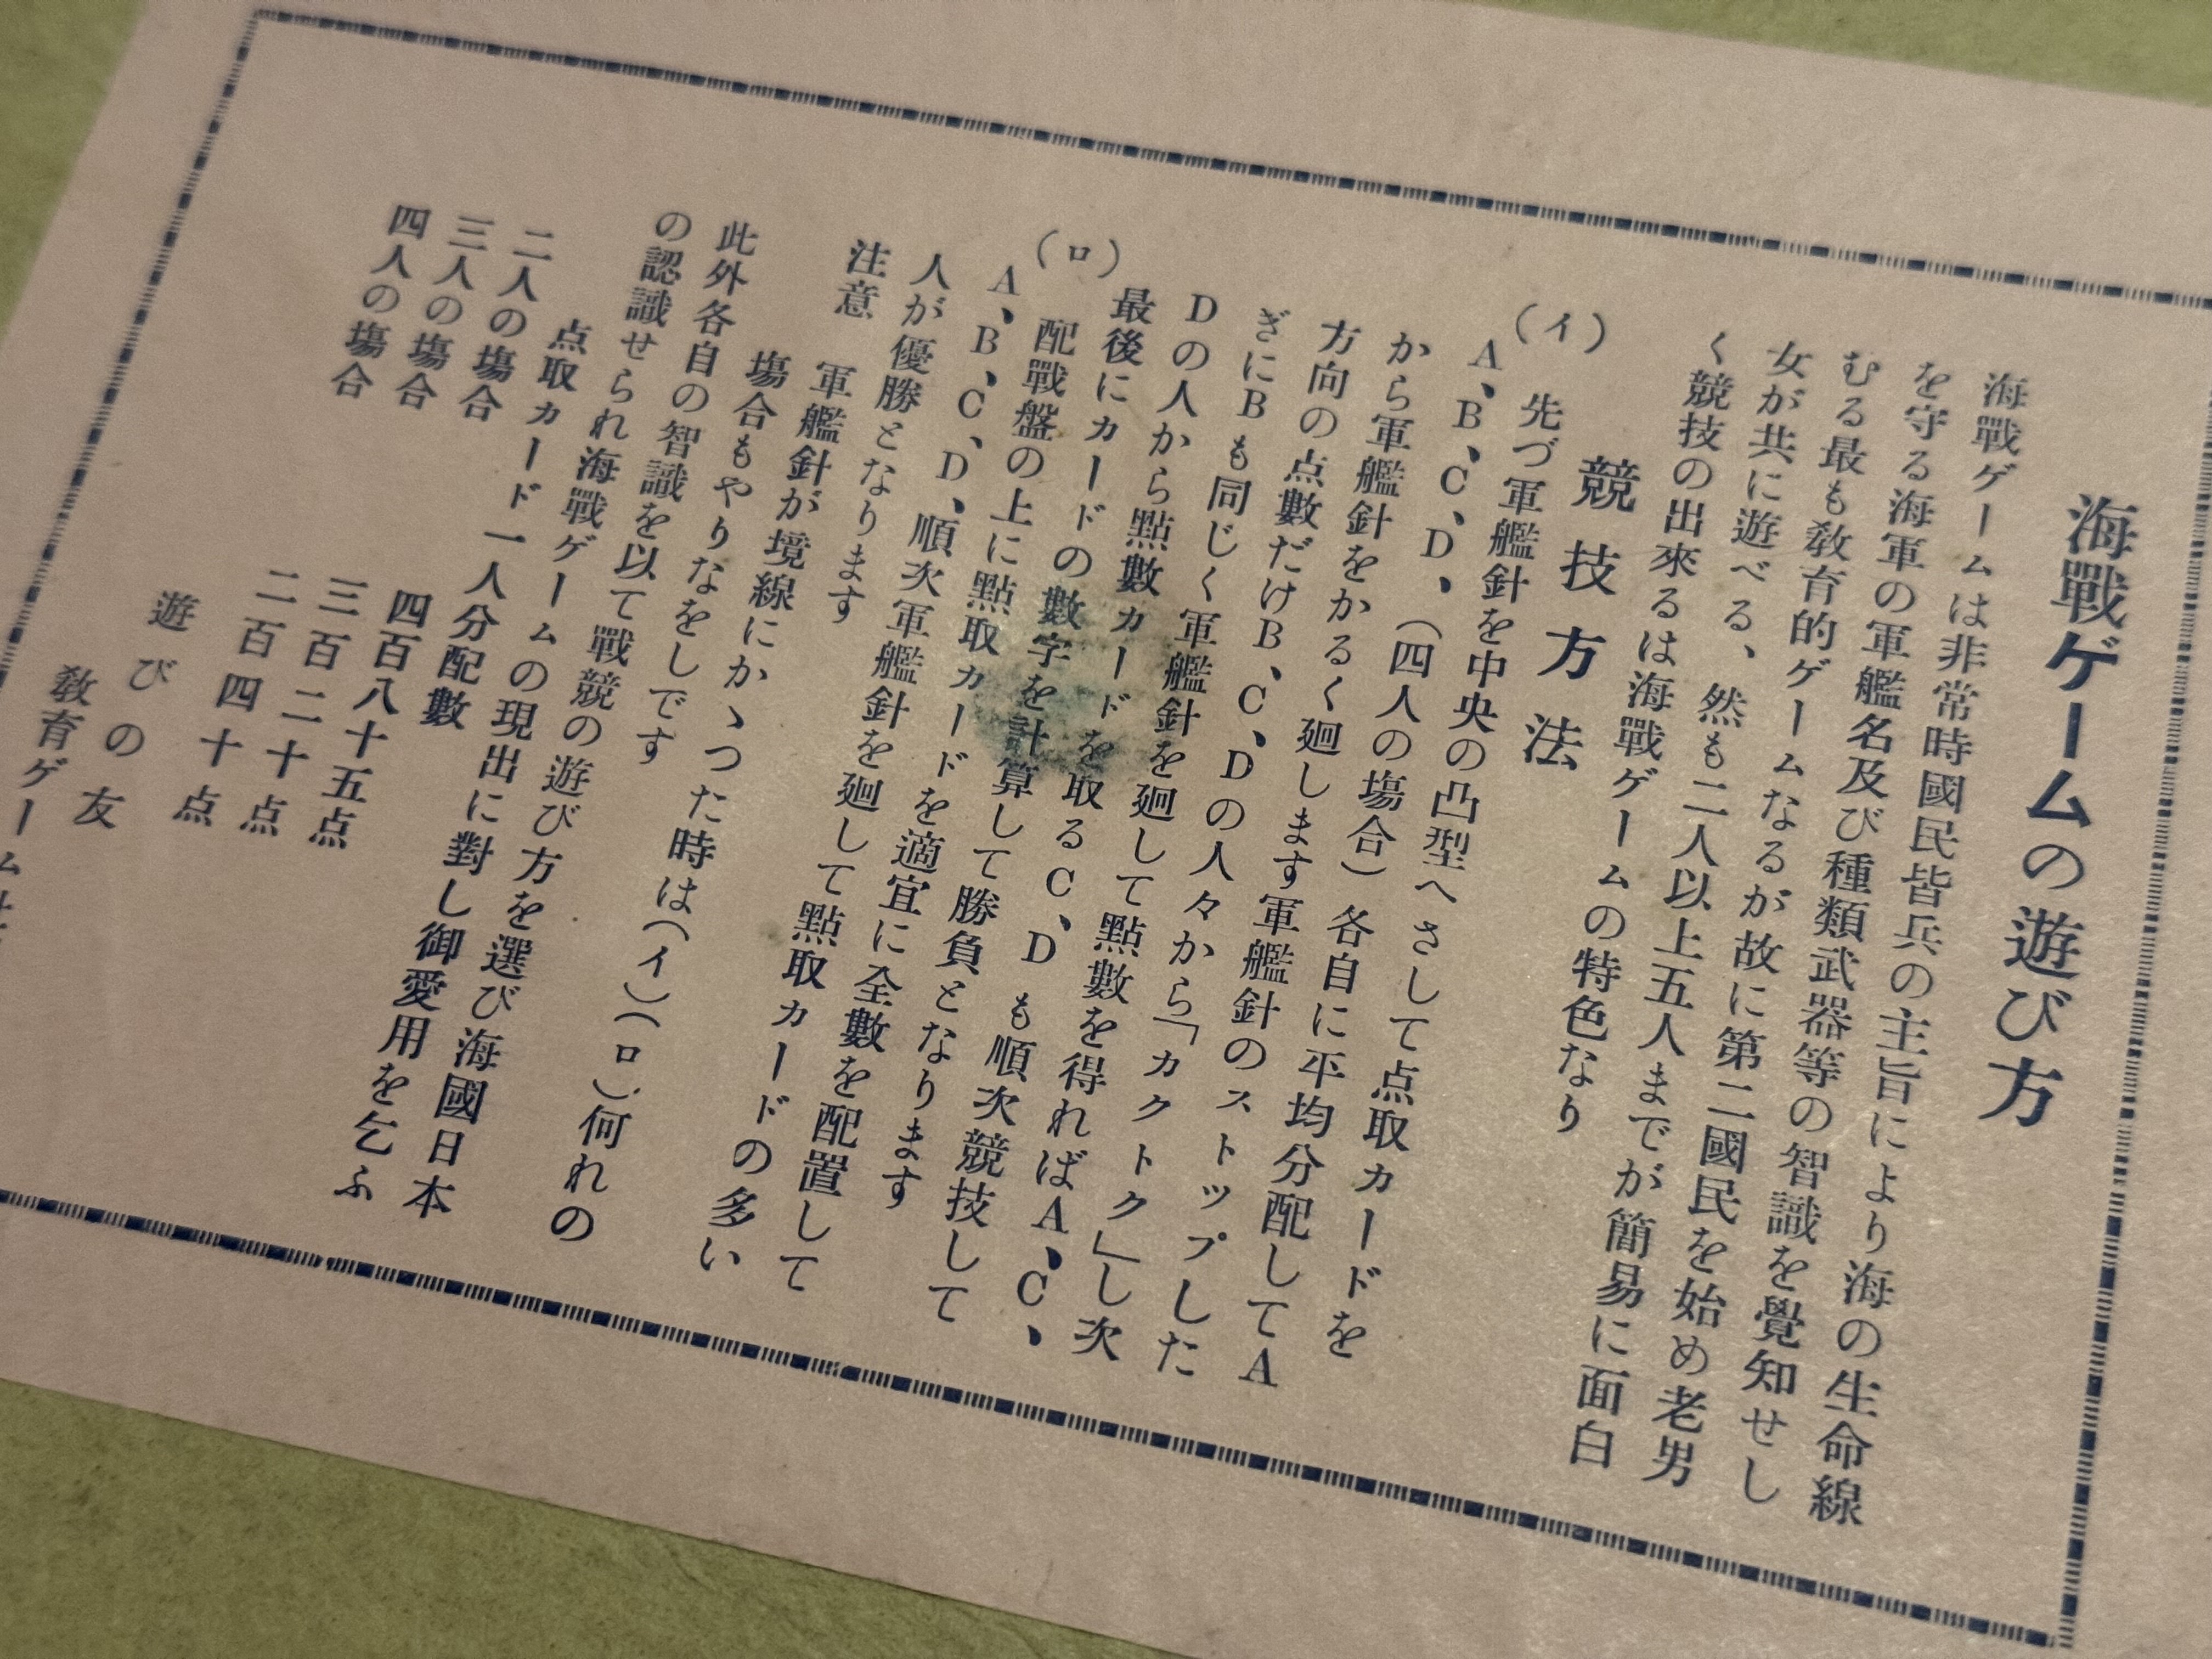 海戰ゲームの遊び方
海戰ゲームは非常時國民皆兵の主旨により海の生命線
を守る海軍の軍艦名及び種類武器等の智識を覺知せし
むる最も教育的ゲームなるが故に第二國民を始め老男
女が共に遊べる、然も二人以上五人までが簡易に面白
く競技の出來るは海戰ゲームの特色なり
競技方法
(イ)
先づ軍艦針を中央の凸型へさして点取カードを
A、B、C、D、(四人の塲合)各自に平均分配してA
から軍艦針をかるく廻します軍艦針のストップした
方向の点數だけB、C、Dの人々から「カクトク」し次
ぎにBも同じく軍艦針を廻して點數を得ればA、C、
Dの人から點數カードを取るC、Dも順次競技して
最後にカードの數字を計算して勝負となります
(ロ)
配戰盤の上に點取カードを適宜に全數を配置して
A、B、C、D、順次軍艦針を廻して點取カードの多い
人が優勝となります
注意 軍艦針が境線にかゝつた時は(イ)(ロ)何れの
塲合もやりなをしです
此外各自の智識を以て戰競の遊び方を選び海國日本
の認識せられ海戰ゲームの現出に對し御愛用を乞ふ
点取カード一人分配數
二人の塲合 四百八十五点
三人の塲合 三百二十点
四人の塲合 二百四十点
遊びの友
教育ゲーム